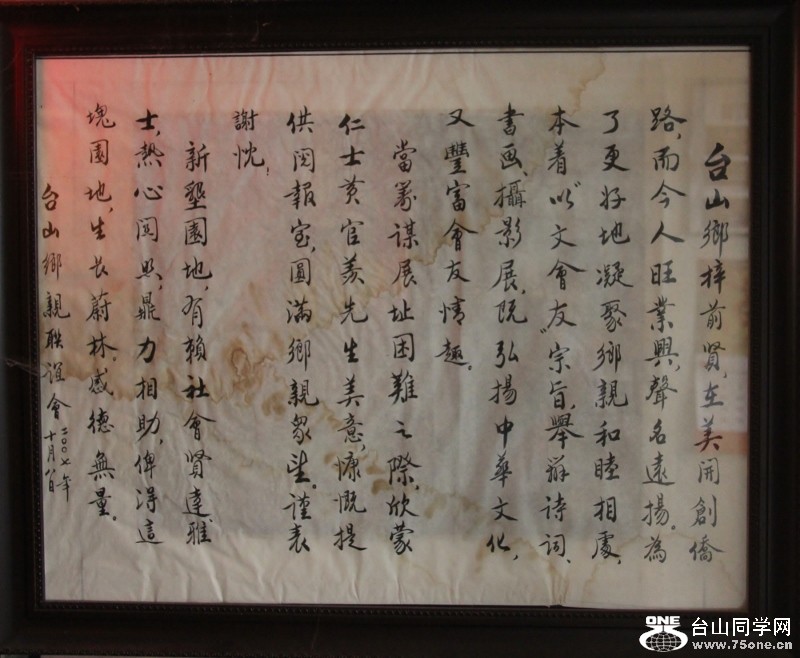 台山鄉梓前賢，在美開創僑
路，而今人旺業興，聲名遠揚。為
了更好地凝聚鄉親和睦相處，
本着“以文會友”宗旨，舉辦詩詞、
書画、攝影展，既弘揚中華文化，
又豐富會友情趣。
當籌謀展址困難之際，欣蒙
仁士黃官羨先生美意，慷慨提
供閔報室，圓滿鄉親衆望。謹表
謝忱！
新墾園地，有賴社會賢達雅
士，熱心関照，鼎力相助，俾得這
塊園地，生長蔚林，感德無量。
台山鄉親聯誼會
二〇〇七年
十月八日
ONE
台山同学网
www.75one.cn